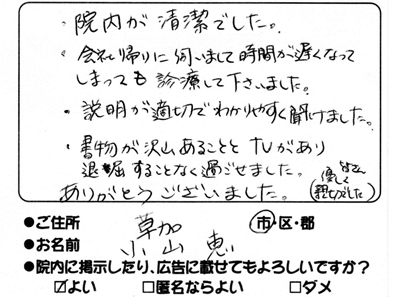 ・院内が清潔でした。
・会社帰りに伺いまして時間が遅くなって
しまっても診療して下さいました。
・説明が適切でわかりやすく聞けました。
・書物が沢山あることとTVがあり
退屈することなく過ごせました。
ありがとうございました。
(皆さん
優しく
親切でした)
●ご住所 草加 市・区・郡
●お名前 小山 恵
●院内に掲示したり、広告に載せてもよろしいですか？
☑よい □匿名ならよい □ダメ